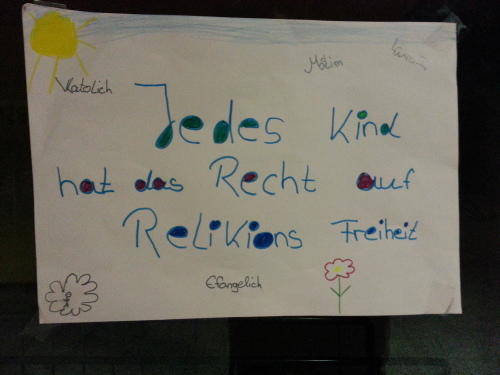 Katolich
Möslim
Jedes Kind
hat das Recht auf
Relikions Freiheit
Efangelich